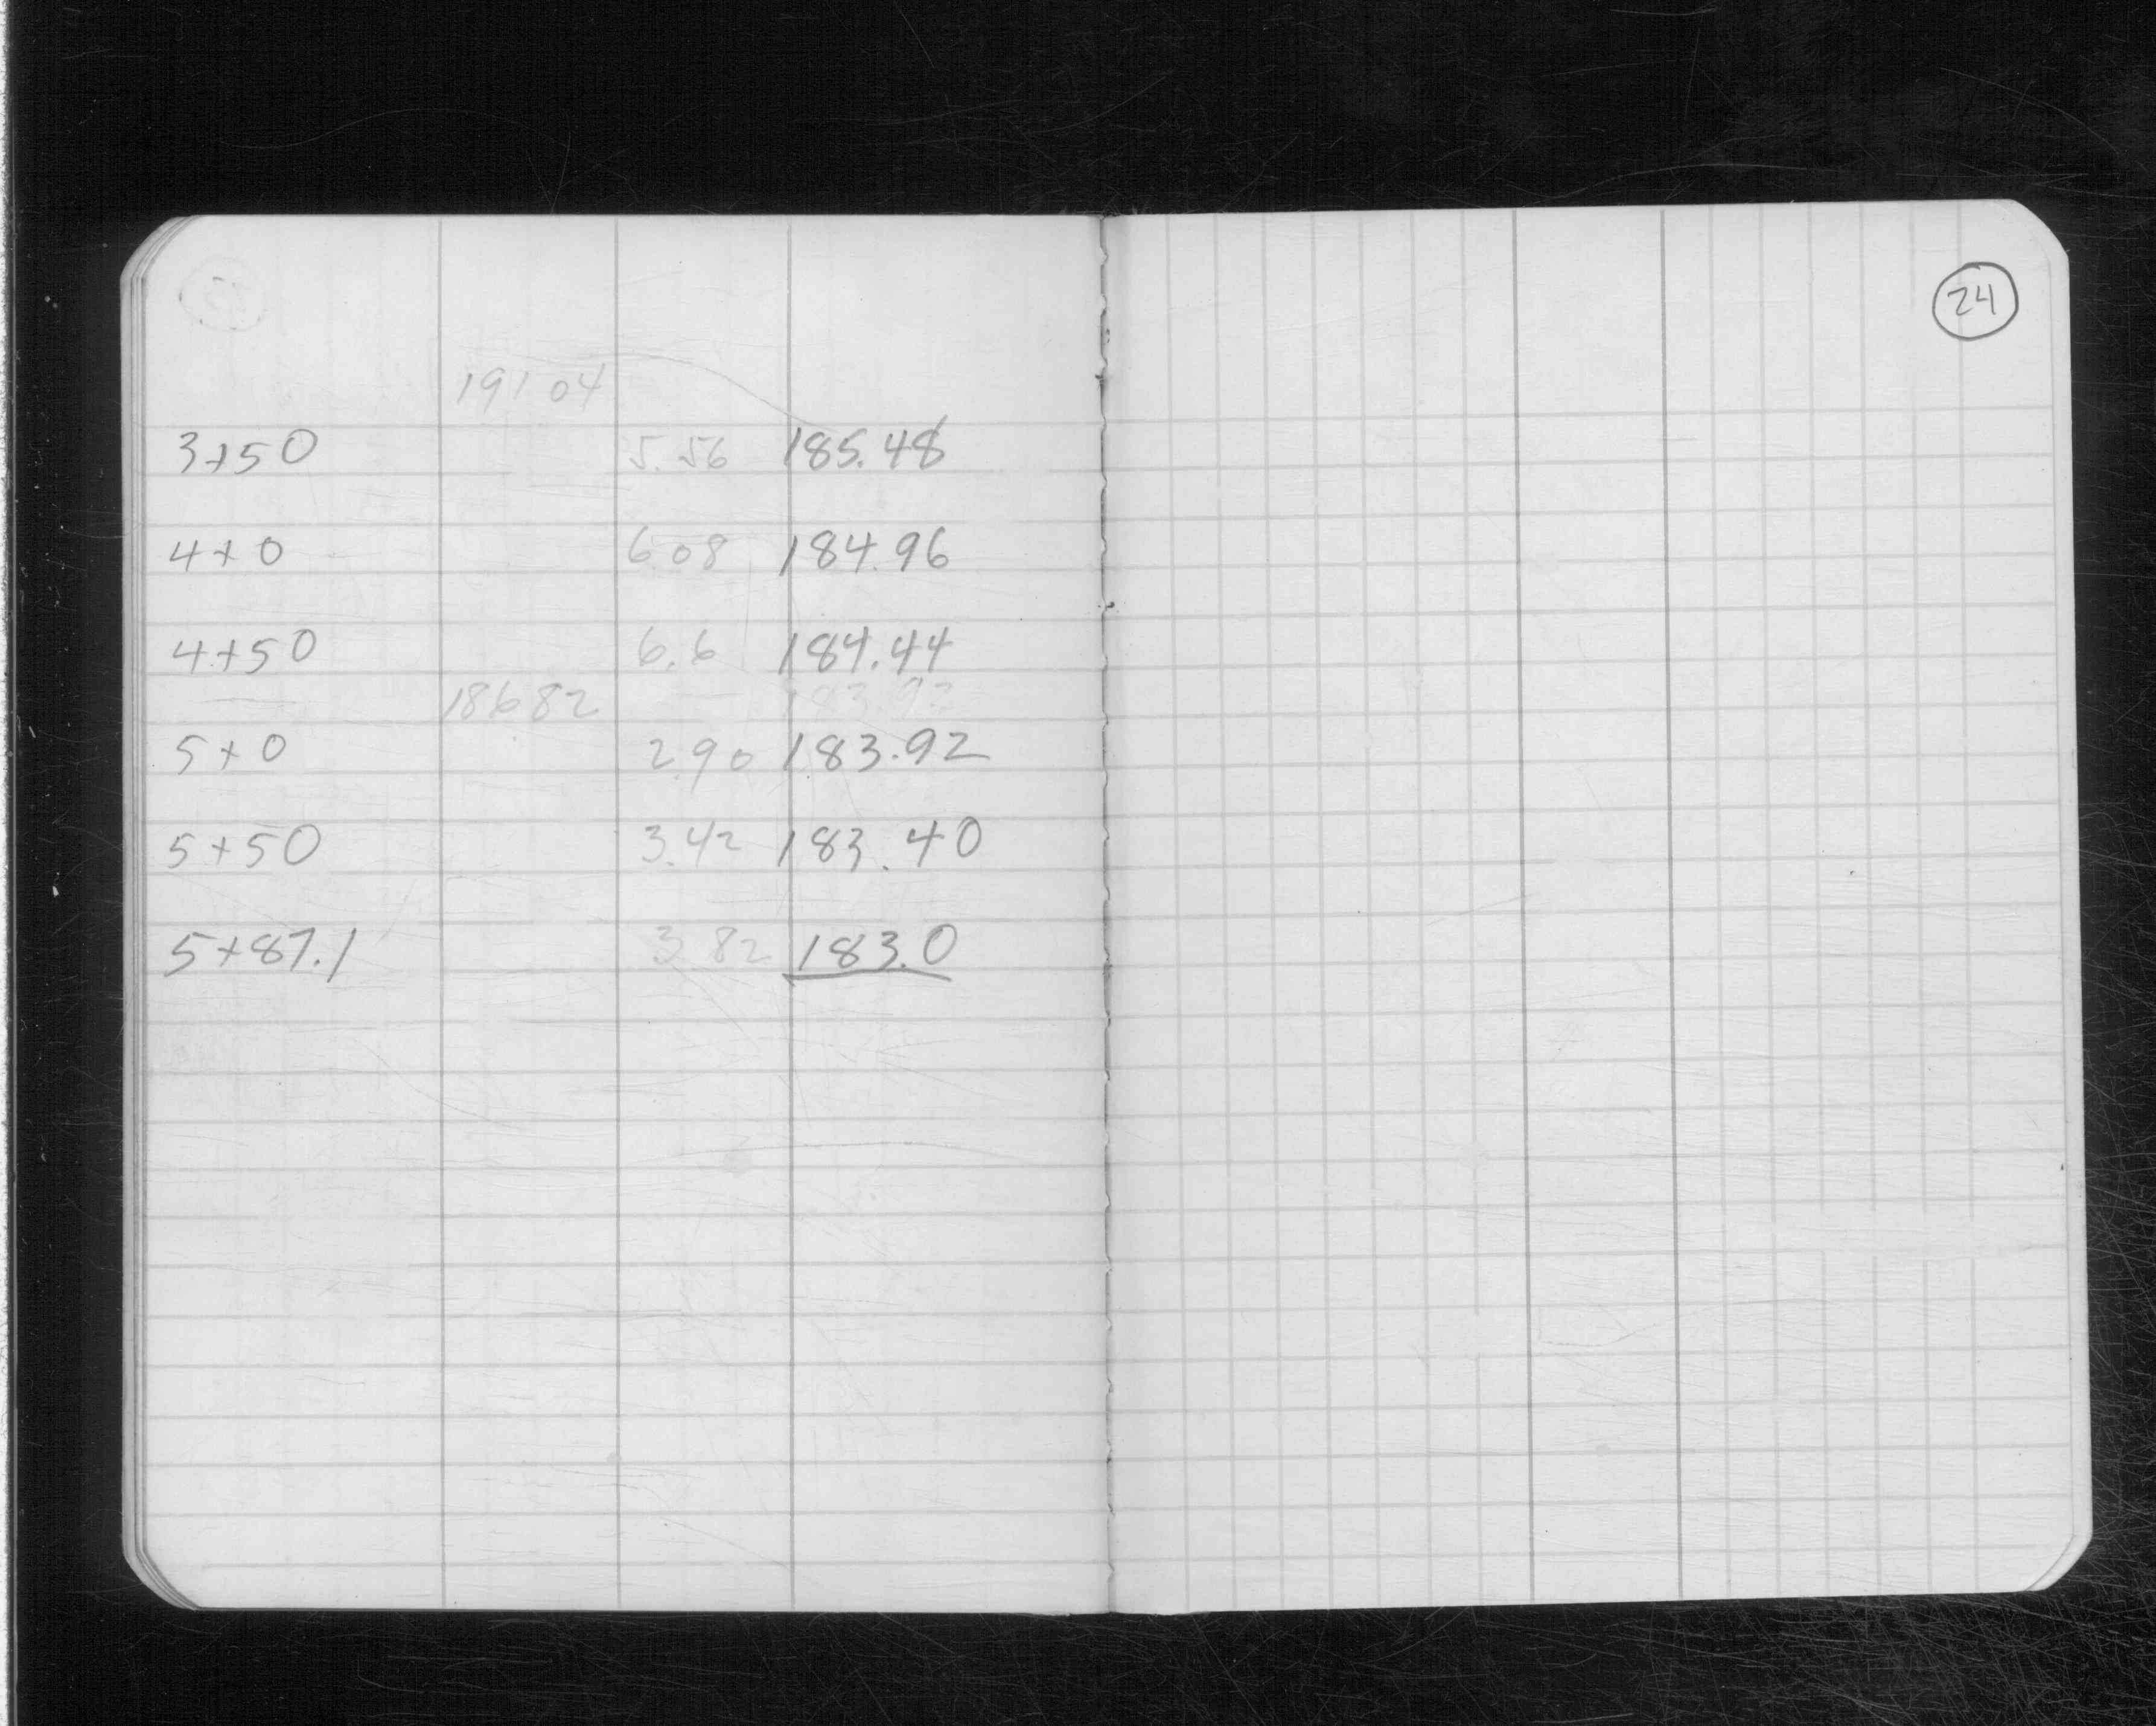 24
191 04
3+50 5.56 185.48
4+0 6 08 184.96
4+50 6.6 184.44
186 82 183.92
5+0 2.90 183.92
5+50 3.42 183.40
5+87.1 3 82 183.0